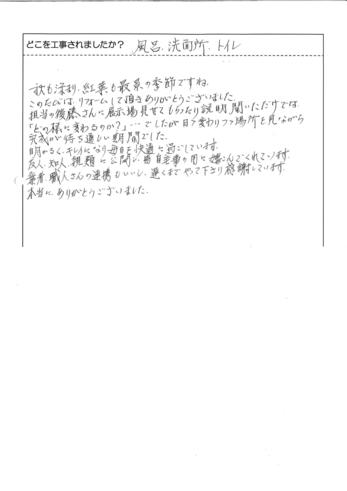 どこを工事されましたか？ 風呂、洗面所、トイレ
秋も深まり、紅葉も最高の季節ですね。
このたびは、リフォームして頂きありがとうございました。
担当の後藤さんに展示場見せてもらったり説明聞いただけでは
「どの様に変わるのか？」…でしたが日々変わりゆく場所を見ながら
完成が待ち遠しい期間でした。
明かるく、キレイになり毎日を快適に過ごしています。
友人、知人、親類に公開し、皆自宅事の用に喜こんでくれています。
業者、職人さんの連携もいいし、遅くまでやって下さり感謝しています。
本当にありがとうございました。